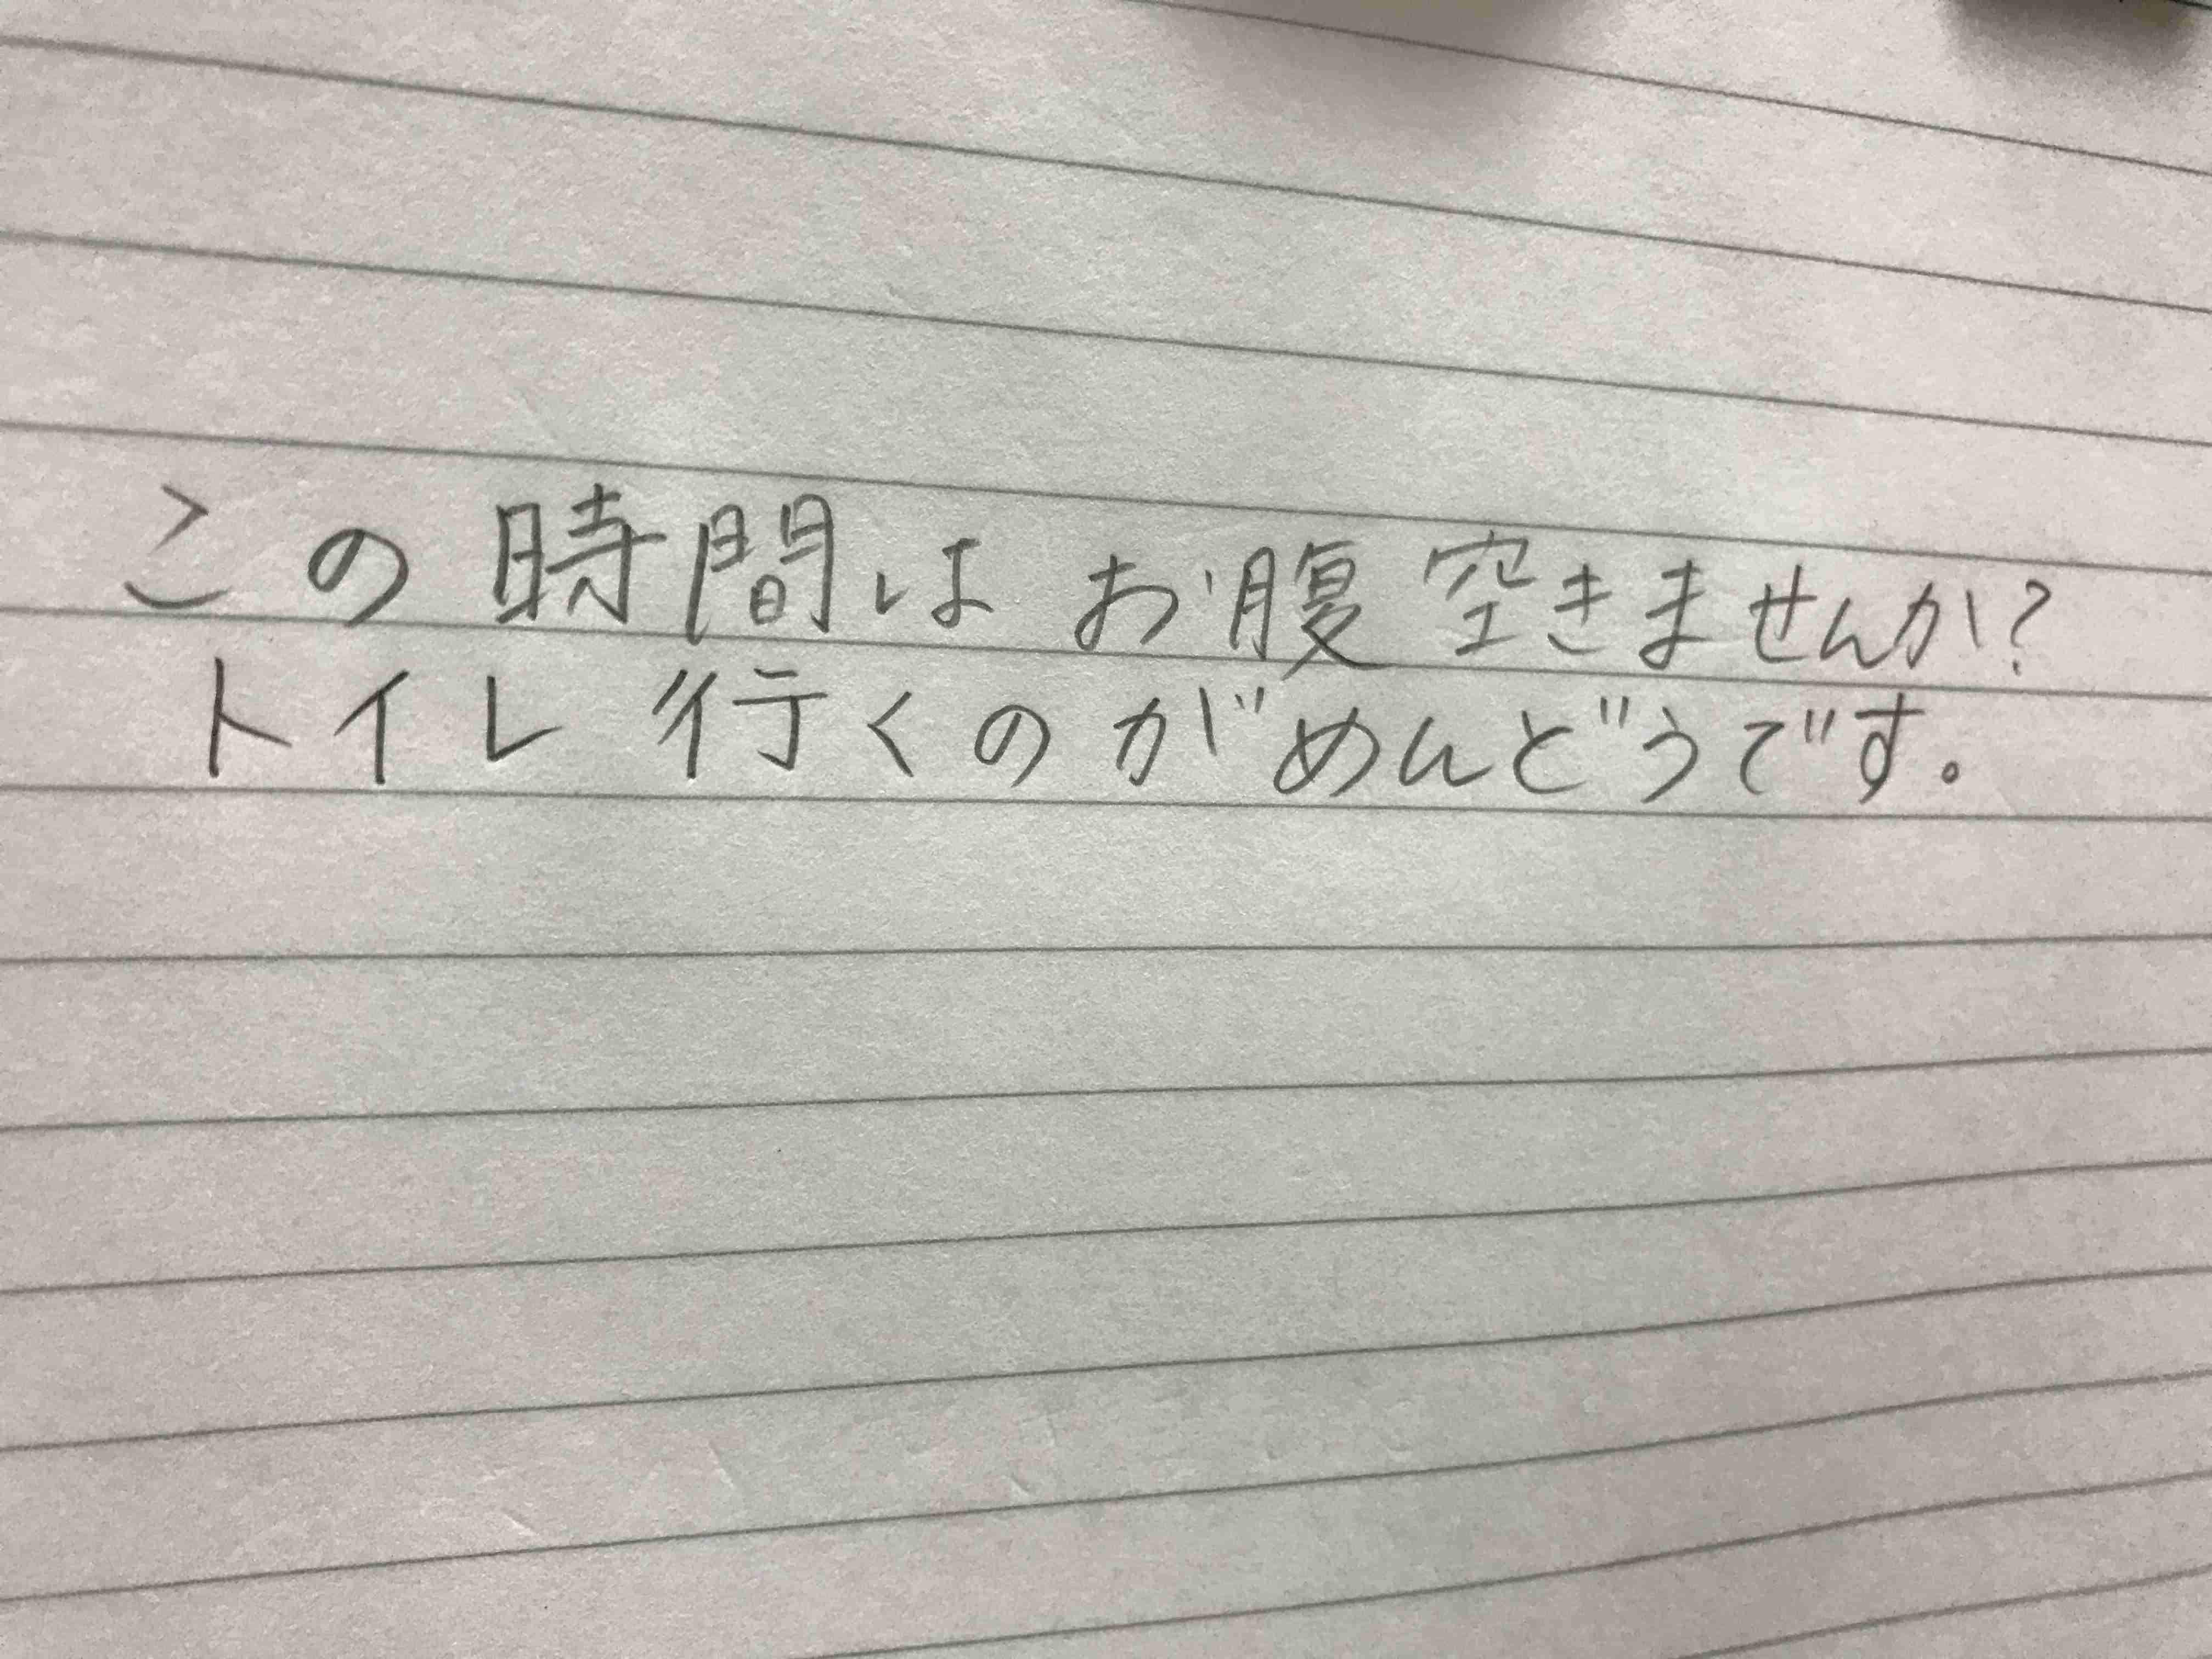 この時間はお腹空きませんか?
トイレ行くのがめんどうです。